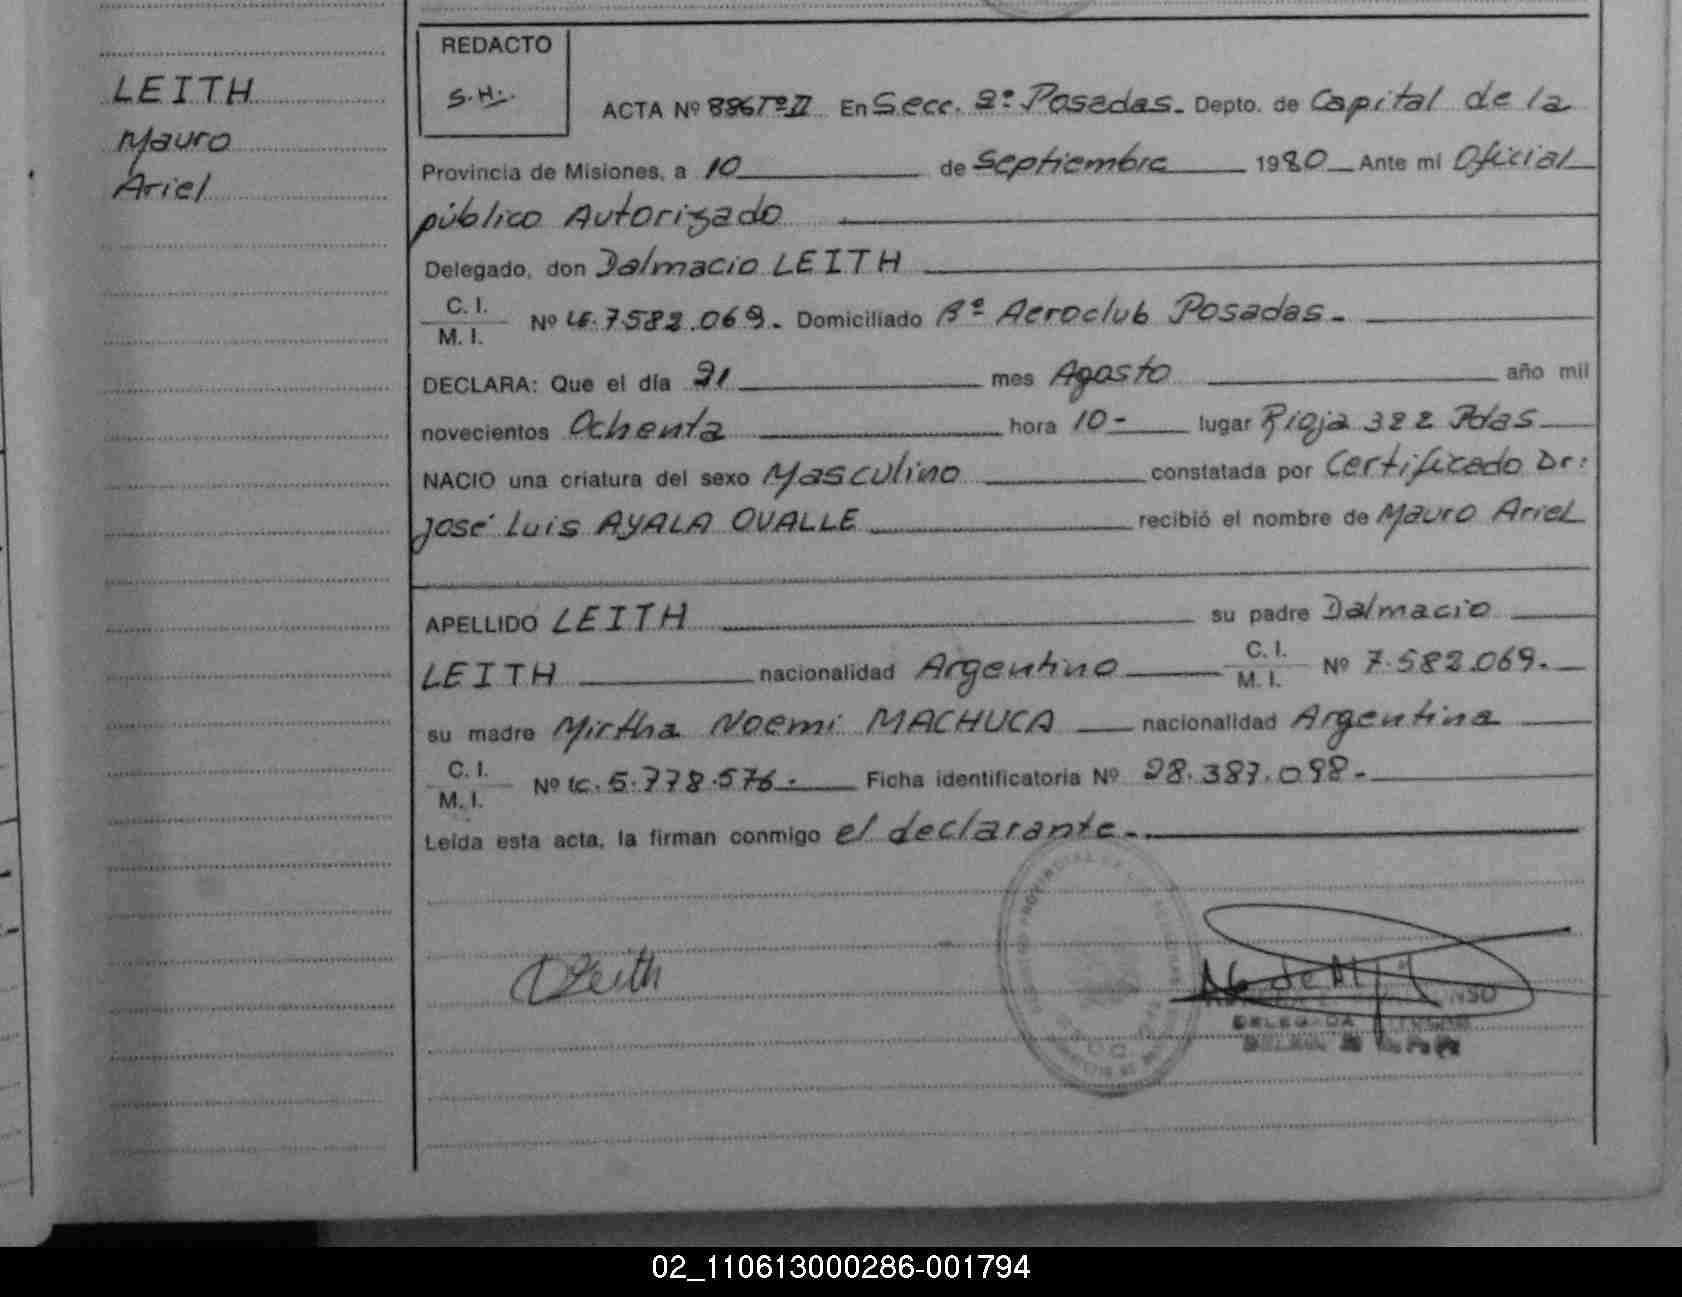 LEITH
Mauro
Ariel
REDACTO
S.H.
ACTA Nº 886 Tº II En Secc. 2º Posadas. Depto. de Capital de la
Provincia de Misiones, a 10 de Septiembre 1980 Ante mi Oficial
público Autorizado
Delegado, don Dalmacio LEITH
C. I.
M. I. Nº LE. 7.582.069. Domiciliado Bº Aeroclub Posadas.
DECLARA: Que el día 21 mes Agosto año mil
novecientos Ochenta hora 10- lugar Rioja 322 Pdas
NACIO una criatura del sexo Masculino constatada por Certificado Dr:
José Luis AYALA OVALLE recibió el nombre de Mauro Ariel
APELLIDO LEITH su padre Dalmacio
LEITH nacionalidad Argentino C. I. M. I. Nº 7.582.069.
su madre Mirtha Noemi MACHUCA nacionalidad Argentina
C. I.
M. I. Nº LC. 5.778.576. Ficha identificatoria Nº 28.387.098.
Leída esta acta, la firman conmigo el declarante.
DLeith
DELEGADA
02_110613000286-001794